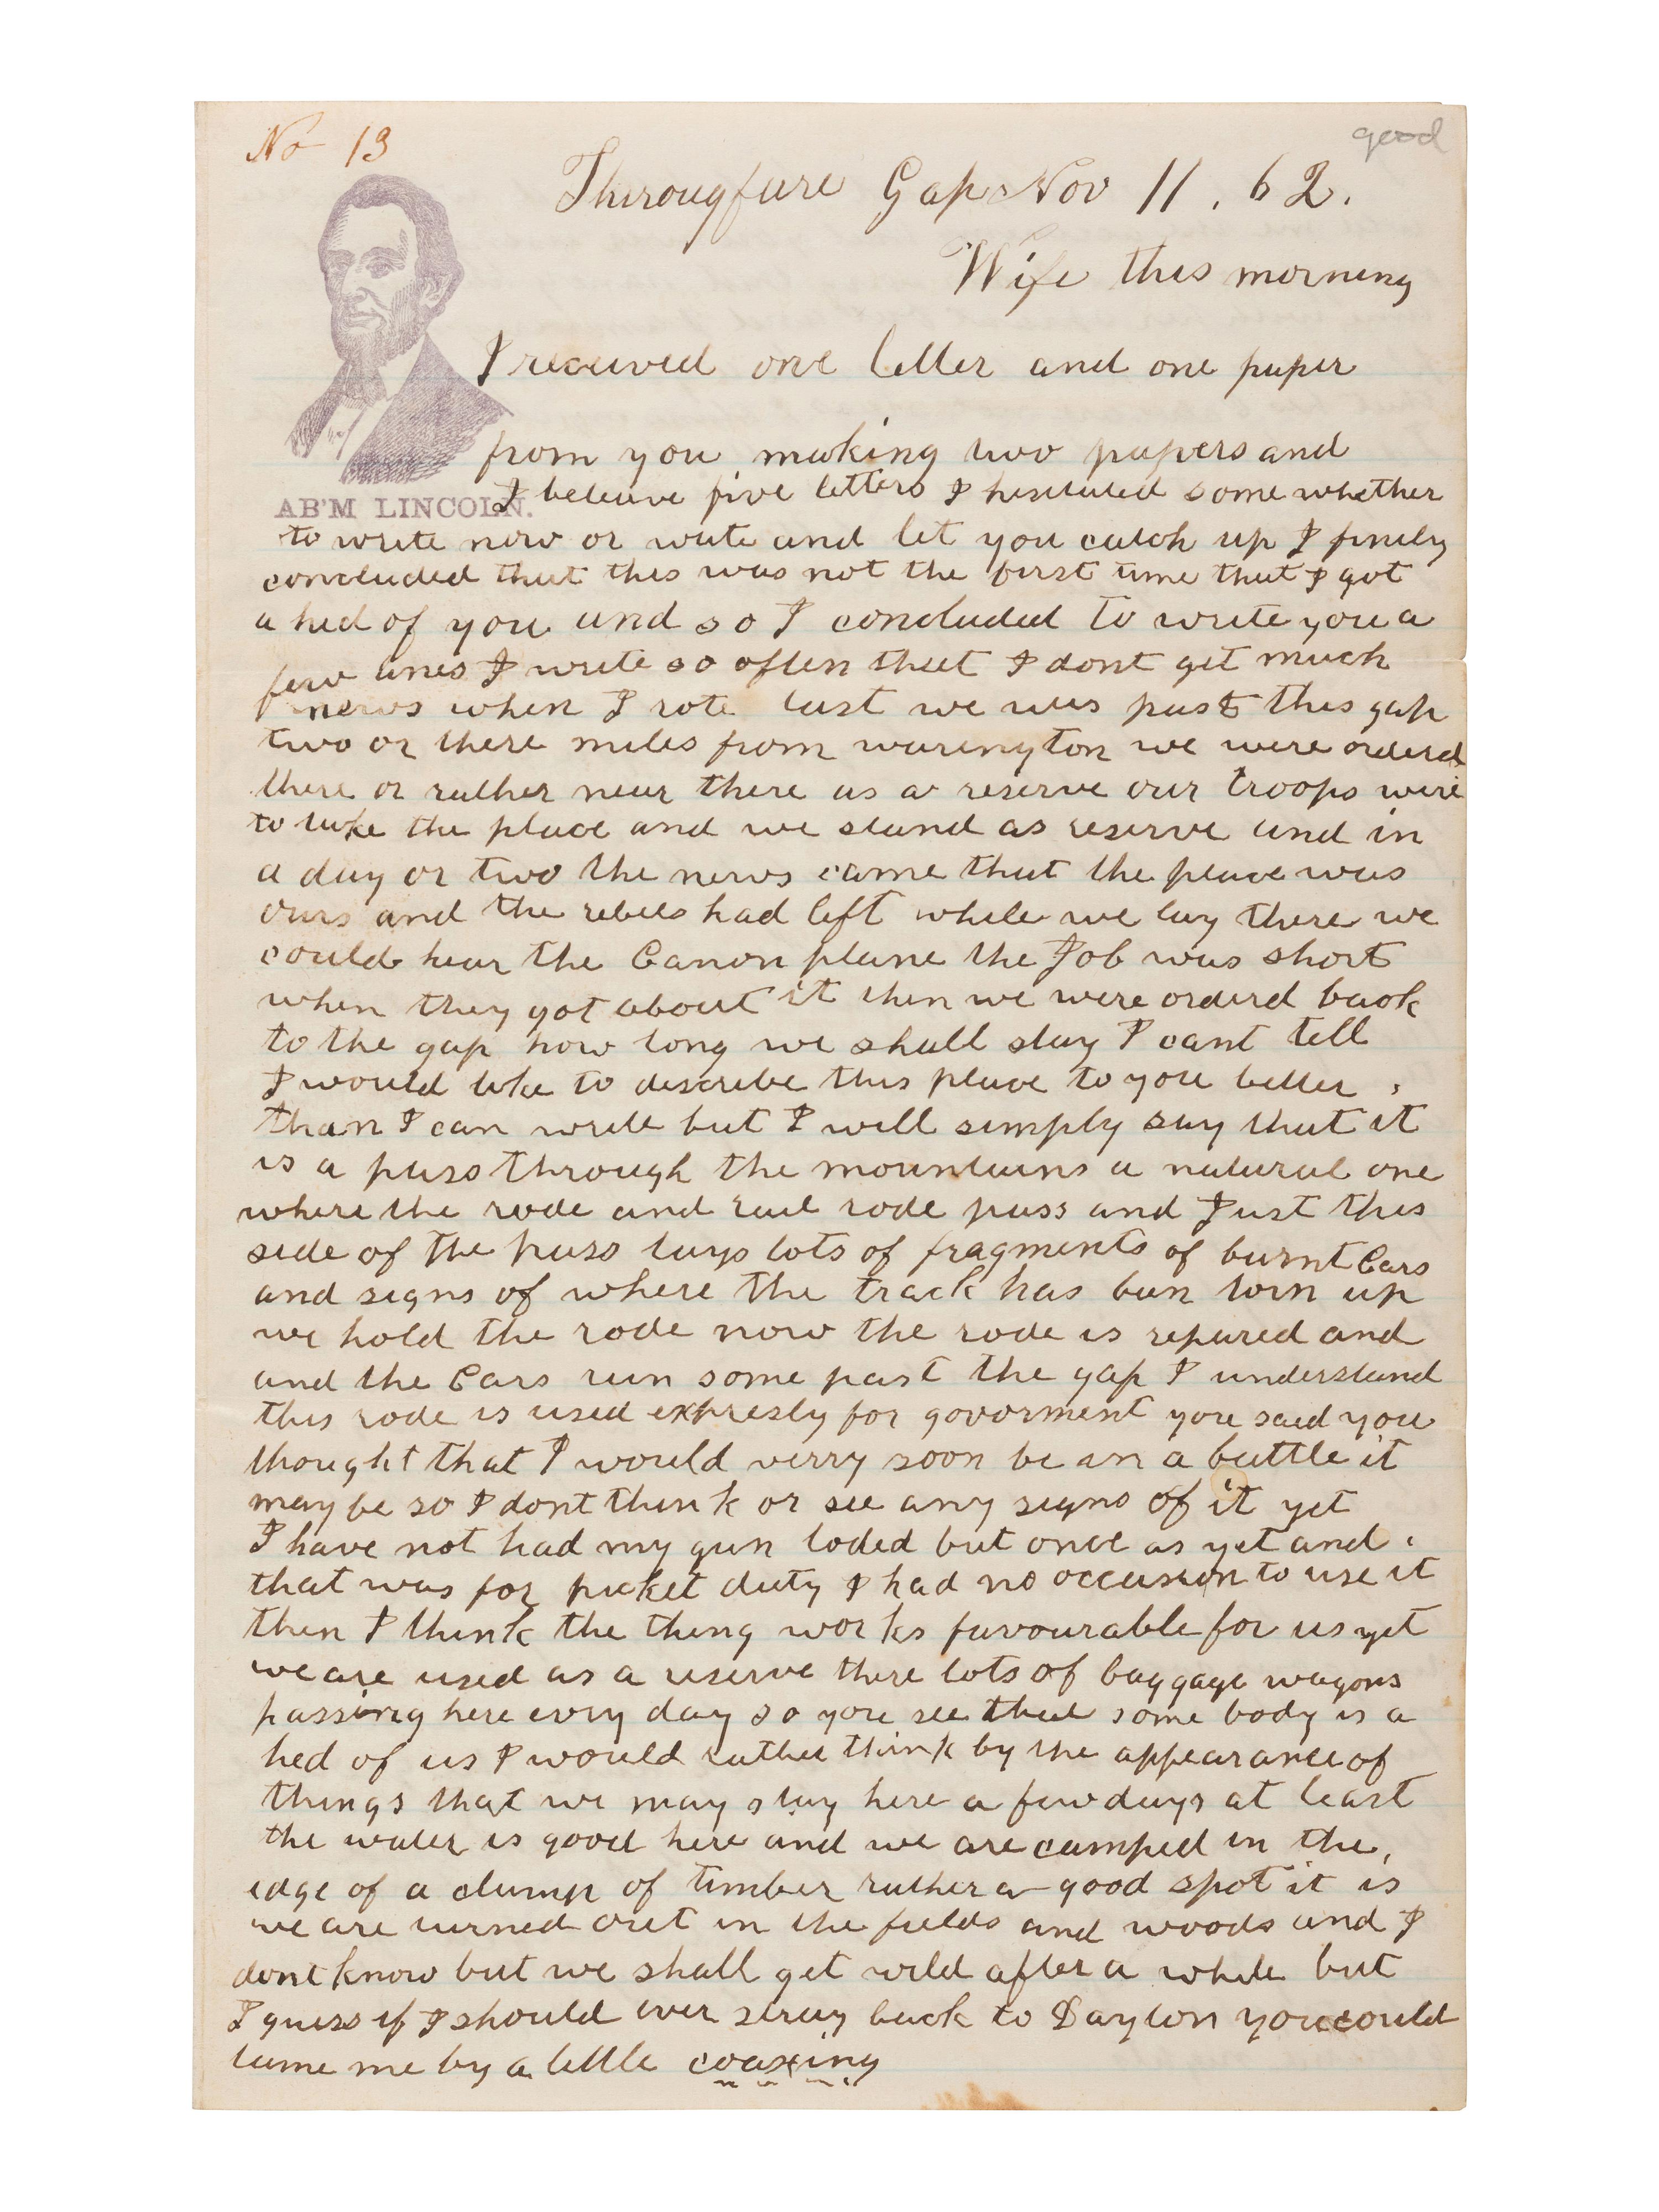 No 13
good
Thurougfure Gap Nov 11. 62.
Wife this morning
I received one letter and one paper
from you making two papers and
AB'M LINCOLN.
I beleave five letters I hesitated some whether
to write now or wate and let you catch up I finely
concluded that this was not the first time that I got
a hed of you and so I concluded to write you a
few lines I write so often that I dont get much
news when I rote last we was past this gap
two or there miles from warington we were orderd
there or rather near there as a reserve our troops were
to take the place and we stand as reserve and in
a day or two the news came that the place was
ours and the rebels had left while we lay there we
could hear the Canon plane the Job was short
when they got about it then we were orderd back
to the gap how long we shall stay I cant tell
I would like to describe this place to you better
than I can write but I will simply say that it
is a pass through the mountains a natural one
where the rode and rail rode pass and Just this
side of the pass lays lots of fragments of burnt Cars
and signs of where the track has bun torn up
we hold the rode now the rode is repared and
and the Cars run some past the gap I understand
this rode is used expresly for govorment you said you
thought that I would verry soon be in a battle it
may be so I dont think or see any signs of it yet
I have not had my gun loded but once as yet and
that was for picket duty I had no occasion to use it
then I think the thing works favourable for us yet
we are used as a reserve there lots of baggage wagons
passing here evry day so you see that some body is a
hed of us I would rather think by the appearance of
things that we may stay here a few days at least
the water is good here and we are camped in the
edge of a clump of timber rather a good spot it is
we are turned out in the fields and woods and I
dont know but we shall get wild after a while but
I guess if I should ever stray back to Dayton you could
tame me by a little coaxing